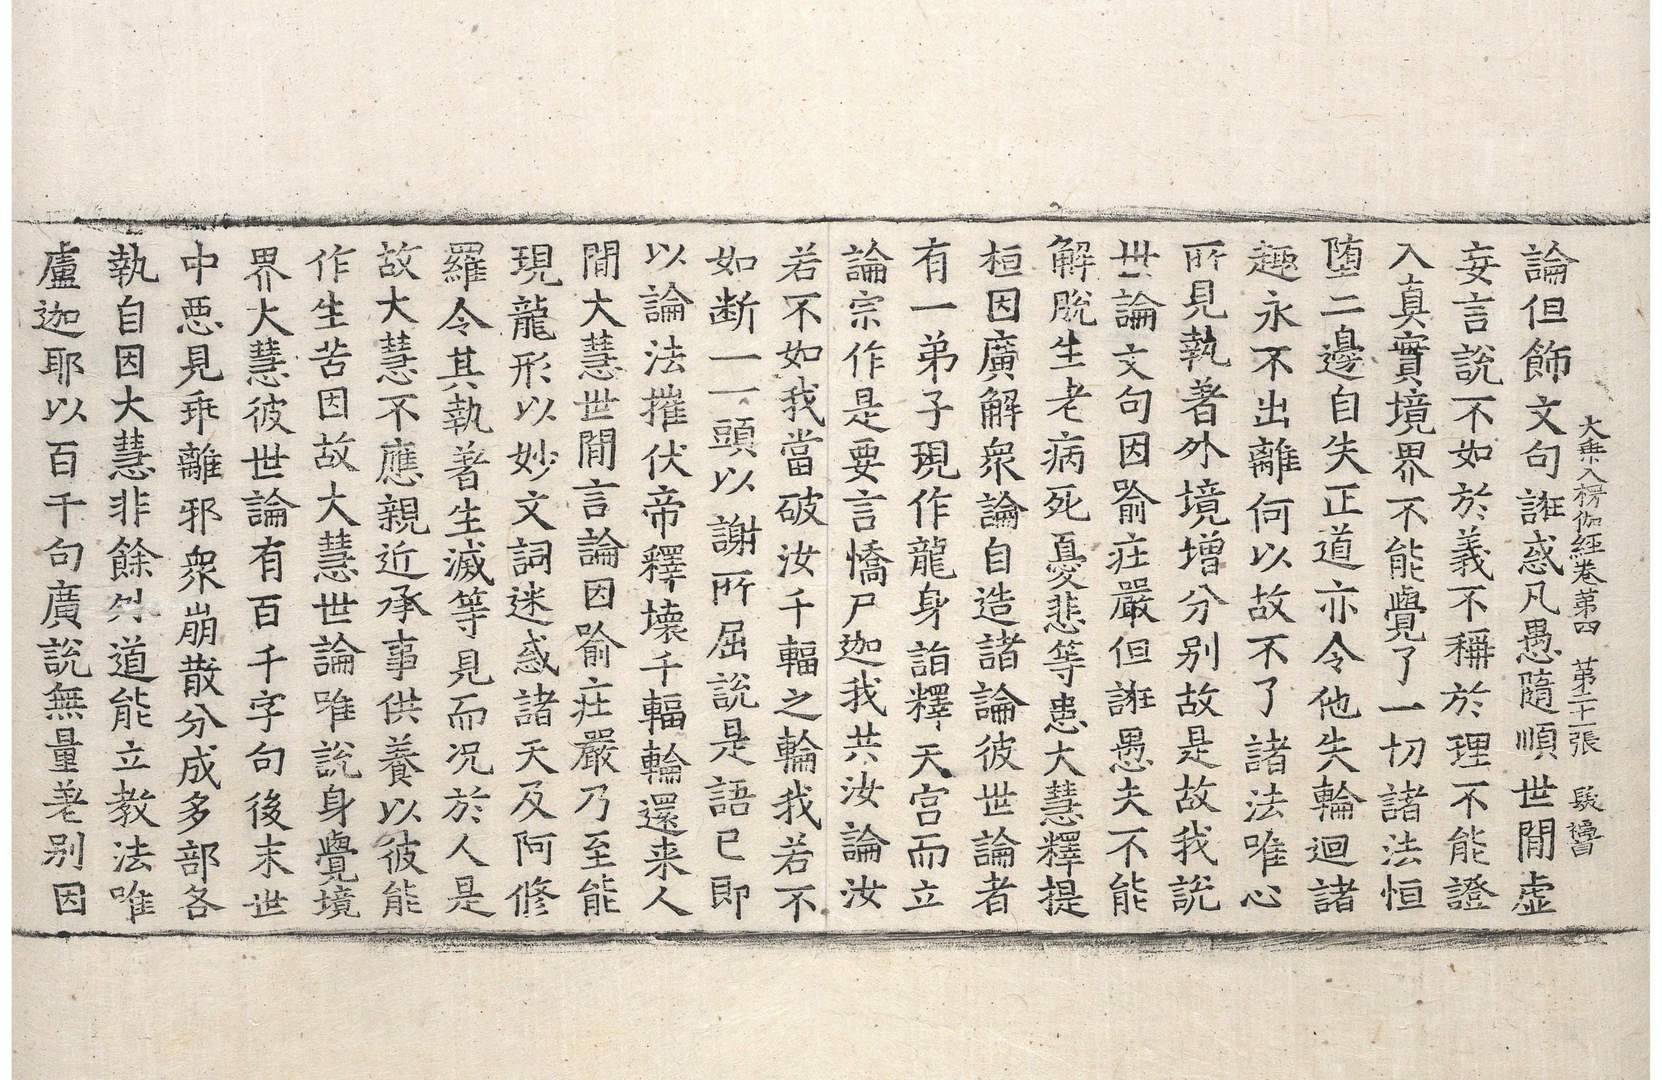 大乗入楞伽經卷苐四 苐二十張
論但飾文句誑惑凡愚隨順世閒虛
妄言說不如於義不稱於理不能證
入真實境界不能覺了一切諸法恒
墮二邊自失正道亦令他失輪迴諸
趣永不出離何以故不了諸法唯心
所見執著外境增分别故是故我說
世論文句因喻莊嚴但誑愚夫不能
解脫生老病死憂悲等患大慧釋提
桓因廣解衆論自造諸論彼世論者
有一弟子現作龍身詣釋天宮而立
論宗作是要言憍尸迦我共汝論汝
若不如我當破汝千輻之輪我若不
如断一一頭以謝所屈說是語已即
以論法摧伏帝釋壞千輻輪還来人
閒大慧世閒言論因喻莊嚴乃至能
現龍形以妙文詞迷惑諸天及阿修
羅令其執著生滅等見而況於人是
故大慧不應親近承事供養以彼能
作生苦因故大慧世論唯說身覺境
界大慧彼世論有百千字句後末世
中惡見乖離邪衆崩散分成多部各
執自因大慧非餘外道能立教法唯
盧迦耶以百千句廣說無量差别因